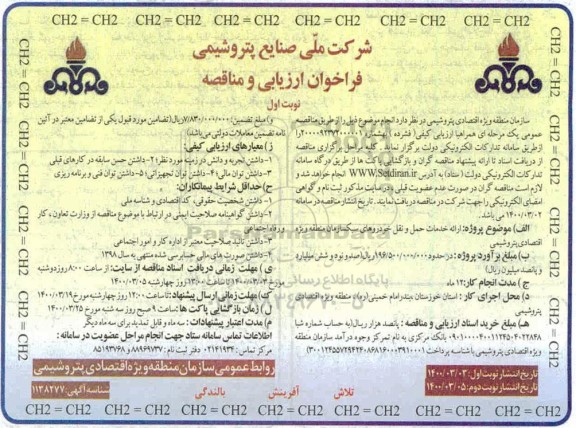 CH2 = CH2 CH2 = CH2 CH2 = CH2 CH2 = CH2 CH2 = CH2 CH2 = CH2
شرکت ملّی صنایع پتروشیمی
فراخوان ارزیابی و مناقصه
نوبت اول
سازمان منطقه ویژه اقتصادی پتروشیمی در نظر دارد انجام موضوع ذیل را از طریق مناقصه
عمومی یک مرحله ای همراه با ارزیابی کیفی (فشرده) بشماره
از طریق سامانه تدارکات الکترونیکی دولت برگزار نماید. کلیه مراحل برگزاری مناقصه
از دریافت اسناد تا ارائه پیشنهاد مناقصه گران و بازگشایی پاکت ها از طریق درگاه سامانه
تدارکات الکترونیکی دولت (ستاد) به آدرس WWW.Setdiran.ir انجام خواهد شد و
لازم است مناقصه گران در صورت عدم عضویت قبلی، در سایت مذکور ثبت نام و گواهی
امضای الکترونیکی را جهت شرکت در مناقصه دریافت نمایند. تاریخ انتشار مناقصه در سامانه
۱۴۰۰/۰۳/۰۲ می باشد.
الف) موضوع پروژه: ارائه خدمات حمل و نقل خودروهای سبک سازمان منطقه ویژه
اقتصادی پتروشیمی
ب) مبلغ برآورد پروژه: در حدود ۱۹۶/۵۰۰/۰۰۰/۰۰۰ ریال (صد و نود و شش میلیارد
و پانصد میلیون ریال)
ج) مدت انجام کار: ۱۲ ماه
د) محل اجرای کار: استان خوزستان بندر امام خمینی (ره)، منطقه ویژه اقتصادی
پتروشیمی
هـ) مبلغ خرید اسناد ارزیابی و مناقصه: پانصد هزار ریال (به حساب شماره شبا
بانک مرکزی به نام تمرکز وجوه درآمد سازمان منطقه
ویژه اقتصادی پتروشیمی با شناسه پرداخت
تاریخ انتشار نوبت اول: ۱۴۰۰/۰۳/۰۳
تاریخ انتشار نوبت دوم: ۱۴۰۰/۰۳/۰۵
و) مبلغ تضمین: ۷/۸۳۰/۰۰۰/۰۰۰ ریال (تضامین مورد قبول یکی از تضامین معتبر در آئین
نامه تضمین معاملات دولتی می باشد)
ز) معیارهای ارزیابی کیفی:
۱- داشتن تجربه و دانش در زمینه مورد نظر ۲- داشتن حسن سابقه در کارهای قبلی
۳- داشتن توان مالی ۴- داشتن توان تجهیزاتی ۵- داشتن توان فنی و برنامه ریزی
ح) حداقل شرایط پیمانکاران:
۱- داشتن شخصیت حقوقی، کد اقتصادی و شناسه ملی
۲- داشتن گواهینامه صلاحیت ایمنی در ارتباط با موضوع مناقصه از وزارت تعاون، کار
و رفاه اجتماعی
۳- داشتن تائید صلاحیت معتبر از اداره کار و امور اجتماعی
۴- داشتن صورت های مالی حسابرسی شده منتهی به سال ۱۳۹۸
ی) مهلت زمانی دریافت اسناد مناقصه از سایت: از ساعت ۸:۰۰ روز دوشنبه
مورخ ۱۴۰۰/۰۳/۰۳ تا ساعت ۱۳:۰۰ روز چهارشنبه مورخ ۱۴۰۰/۰۳/۰۵
ک) مهلت زمانی ارسال پیشنهاد: تا ساعت ۱۲:۰۰ روز چهارشنبه مورخ ۱۴۰۰/۰۳/۱۹
ل) زمان بازگشایی پاکت ها: ساعت ۹ صبح روز سه شنبه مورخ ۱۴۰۰/۰۳/۲۵
م) مدت اعتبار پیشنهادات: سه ماه و قابل تمدید برای سه ماه دیگر
اطلاعات تماس سامانه ستاد جهت انجام مراحل عضویت در سامانه:
مرکز تماس: ۰۲۱۴۱۹۳۴ دفتر ثبت نام: ۸۸۹۶۹۷۳۷ و ۸۵۱۹۳۷۶۸
روابط عمومی سازمان منطقه ویژه اقتصادی پتروشیمی
شناسه آگهی: ۱۱۳۸۲۷۷
تلاش آفرینش بالندگی
CH2 = CH2 CH2 = CH2 CH2 = CH2 CH2 = CH2 CH2 = CH2 CH2 = CH2